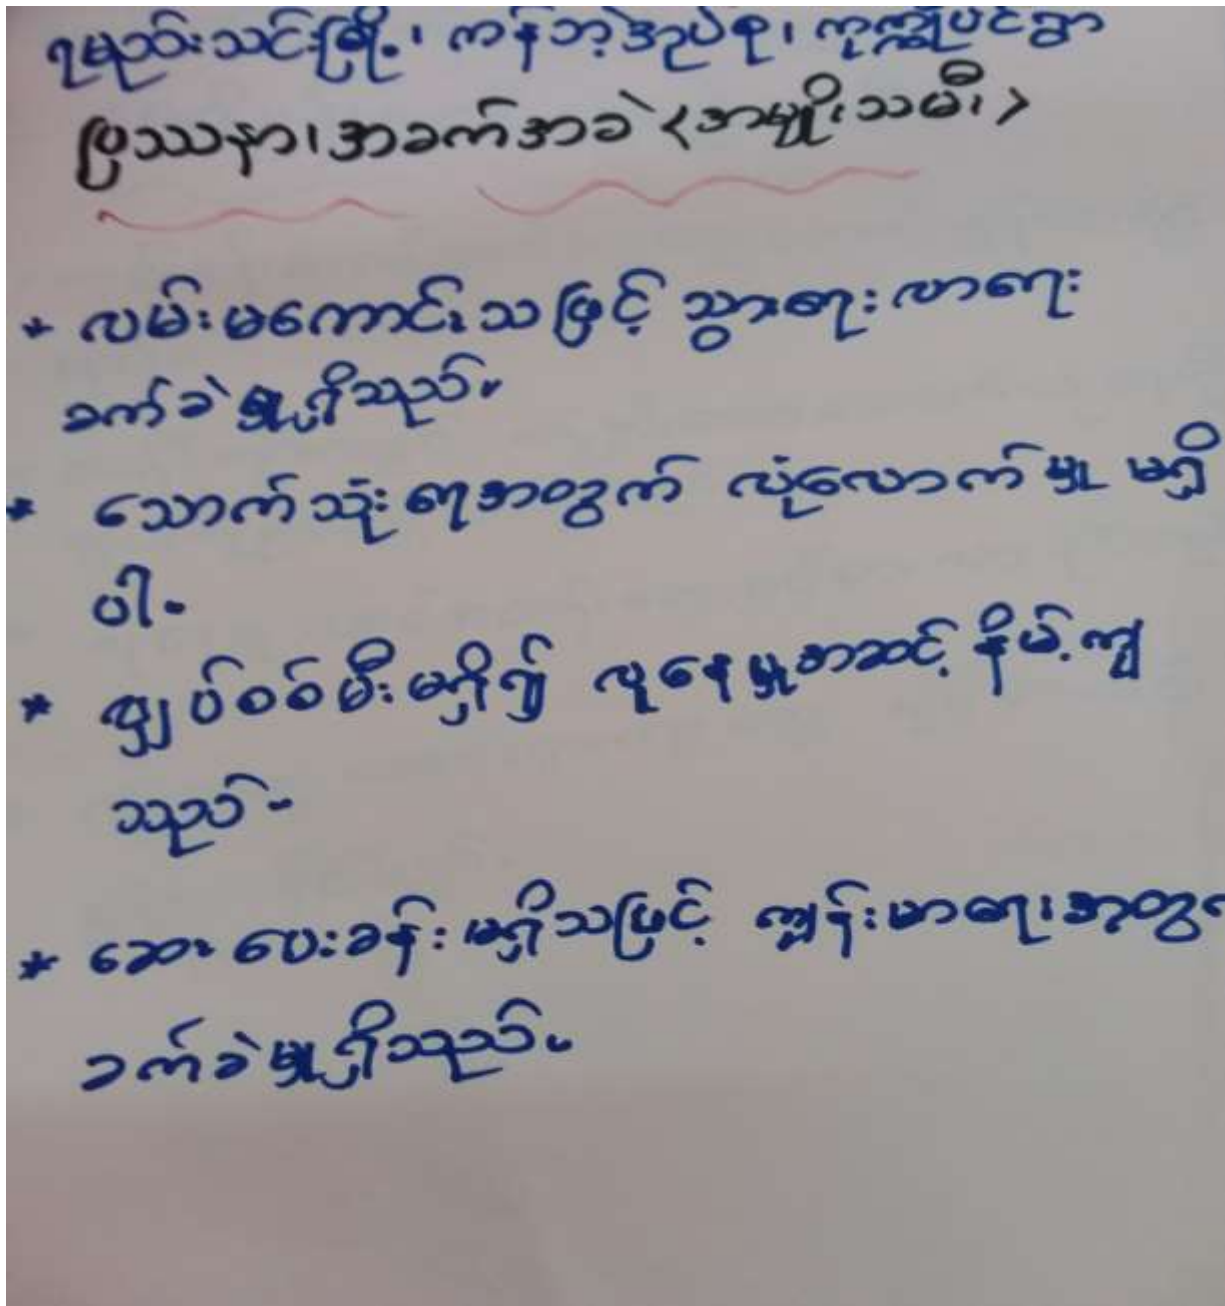 ရမည်းသင်းမြို့၊ ကန်ဘဲ့အုပ်စု၊ ကုက္ကိုပင်ရွာ
ပြဿနာ၊အခက်အခဲ <အမျိုးသမီး>
* လမ်းမကောင်းသဖြင့် သွားရေးလာရေး
ခက်ခဲမှုရှိသည်။
* သောက်သုံးရေအတွက် လုံလောက်မှု မရှိ
ပါ။
* လျှပ်စစ်မီးမရှိ၍ လူနေမှုအဆင့်နိမ့်ကျ
သည်။
* ဆေးပေးခန်းမရှိသဖြင့် ကျွန်းမာရေးအတွ
ခက်ခဲမှုရှိသည်။